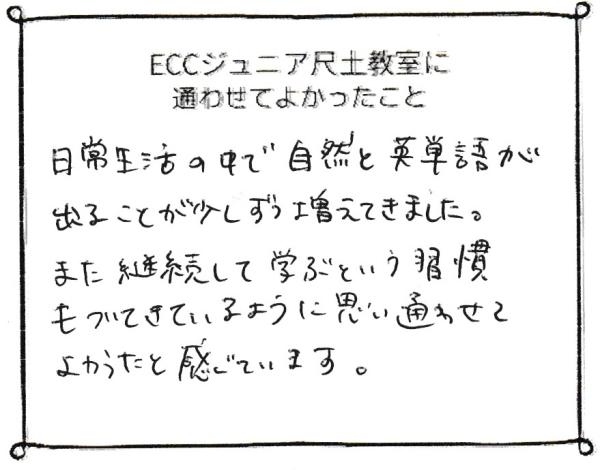 ECCジュニア尺土教室に
通わせてよかったこと
日常生活の中で自然と英単語が
出ることが少しずつ増えてきました。
また継続して学ぶという習慣
もづいてきているように思い通わせて
よかったと感じています。